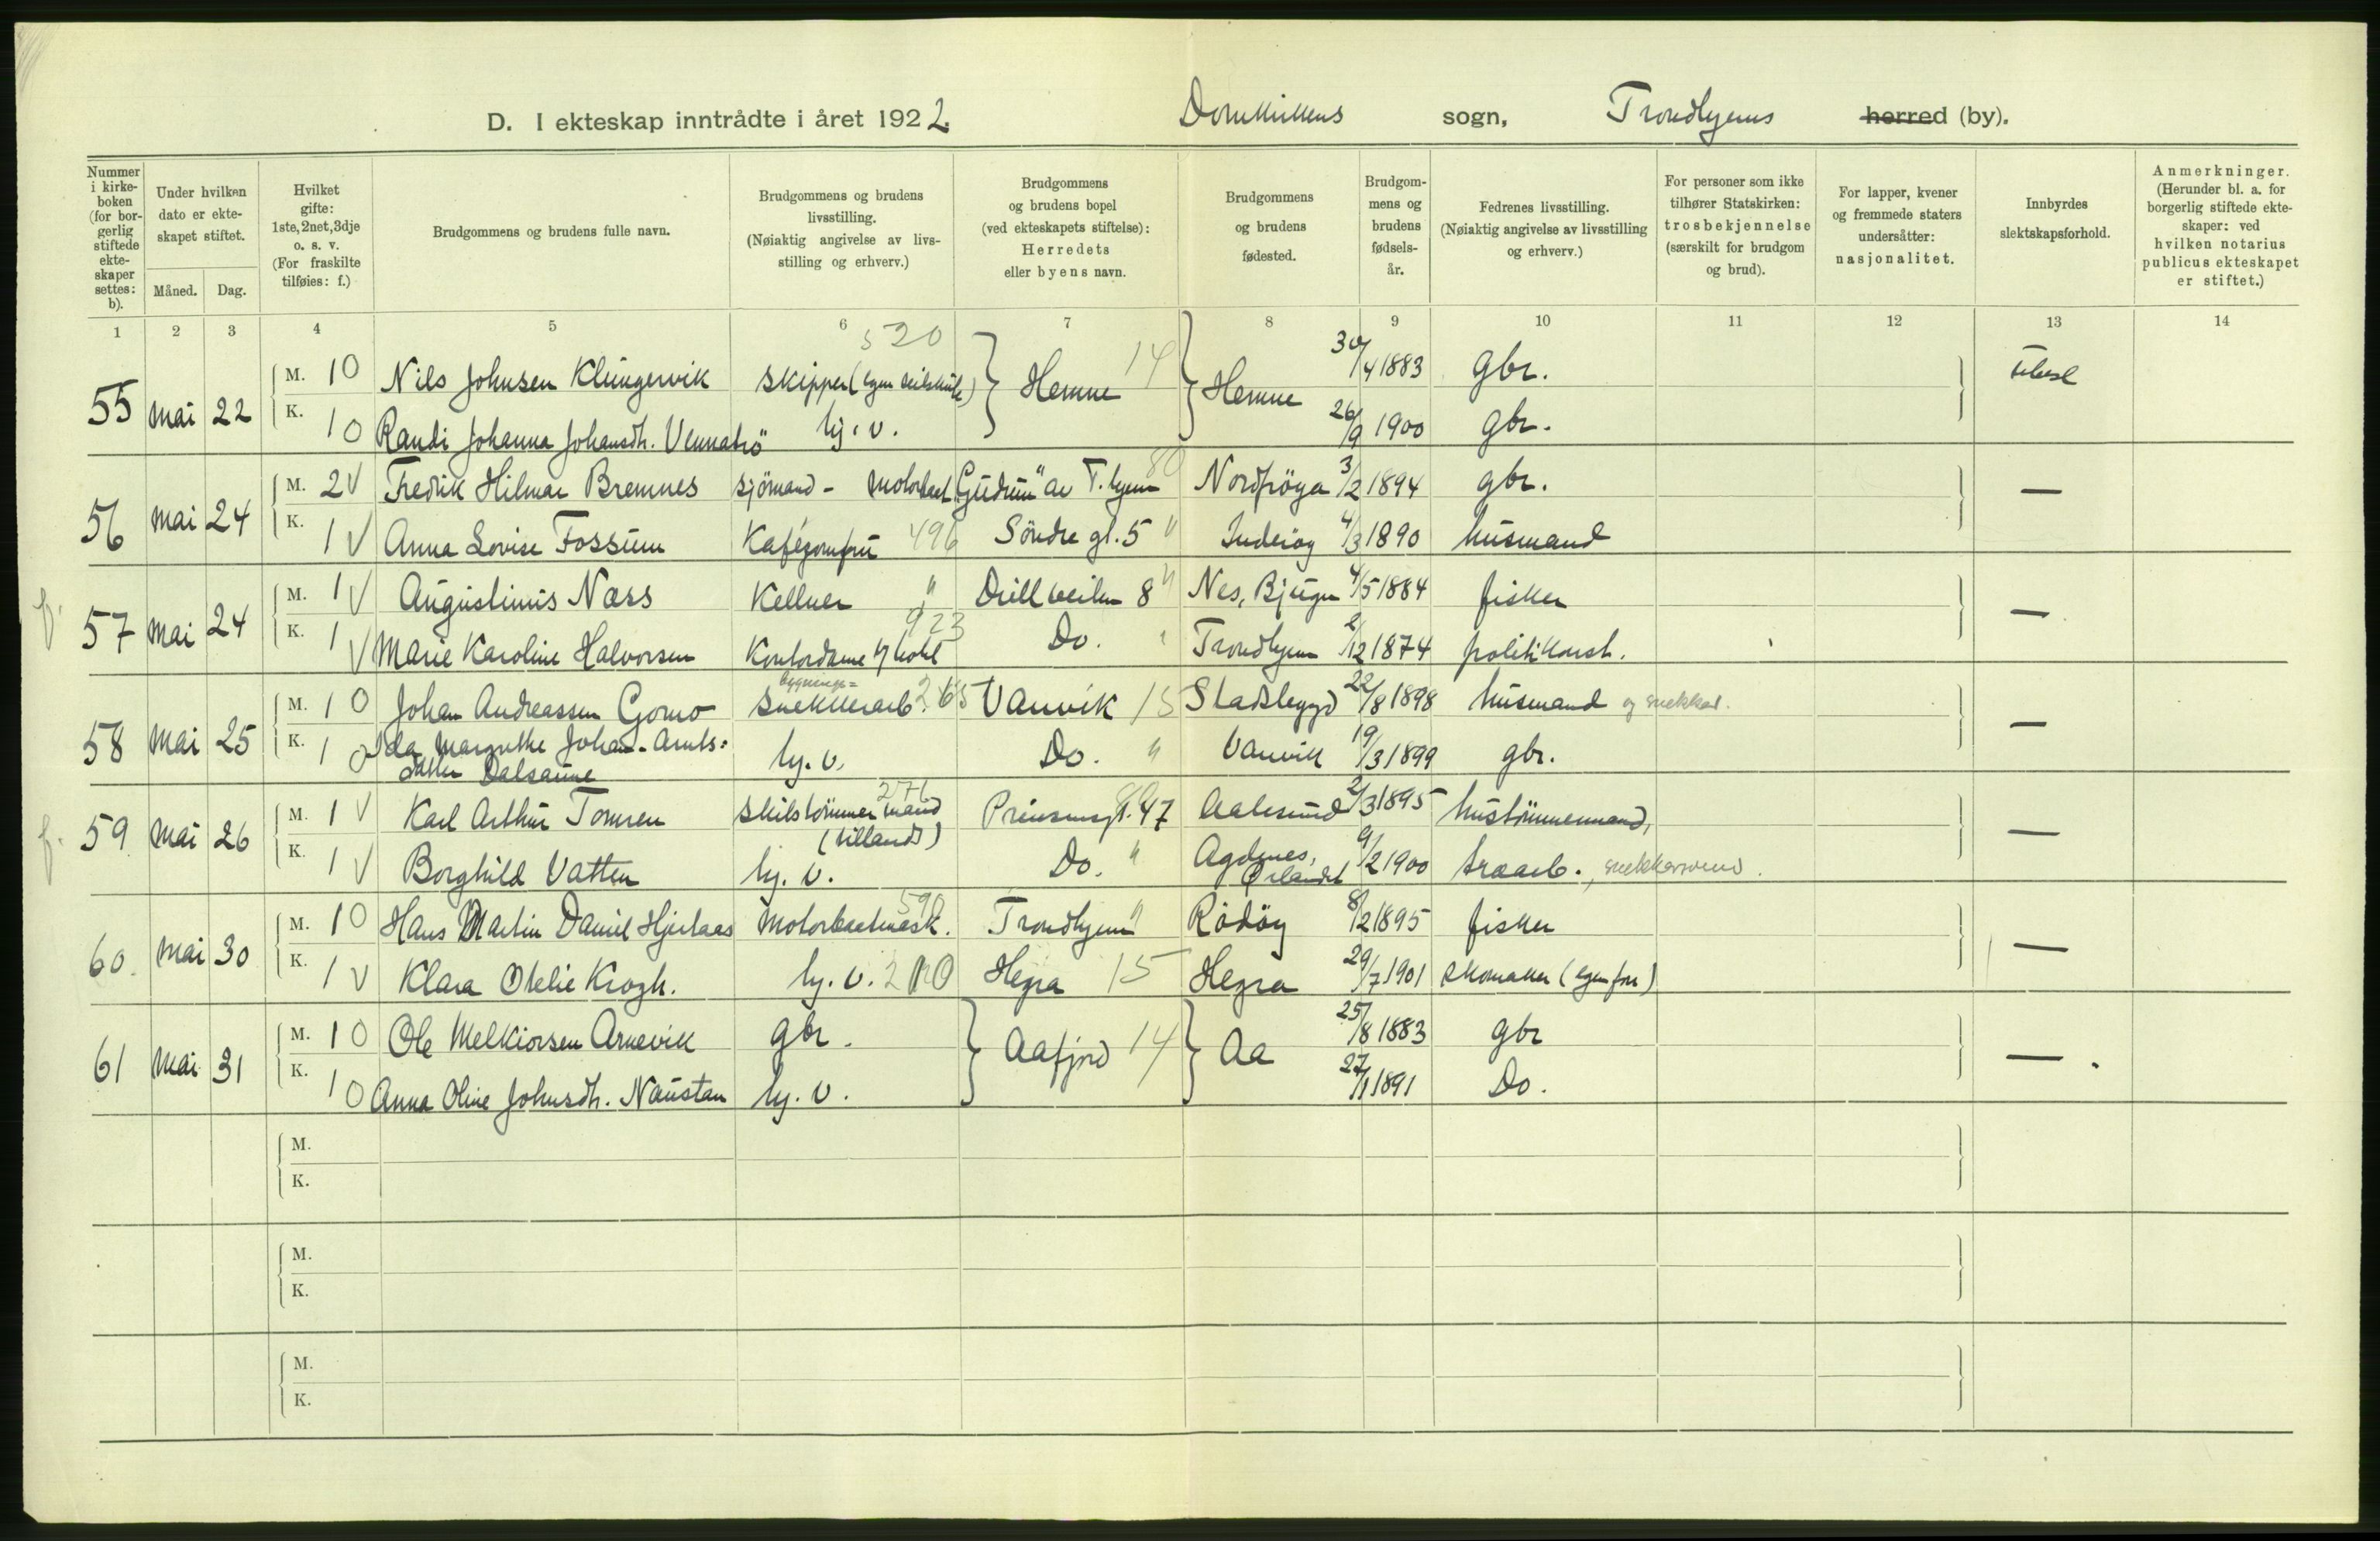 D. I ekteskap inntrådte i året 1922. Domkirkens sogn, Trondhjems herred (by).
Nummer i kirkeboken (for borgerlig stiftede ekteskaper settes: b).
Under hvilken dato er ekteskapet stiftet.
Måned. Dag.
Hvilket gifte: 1ste, 2net, 3dje o. s. v. (For fraskilte tilføies: f.)
Brudgommens og brudens fulle navn.
Brudgommens og brudens livsstilling. (Nøiaktig angivelse av livsstilling og erhverv.)
Brudgommens og brudens bopel (ved ekteskapets stiftelse): Herredets eller byens navn.
Brudgommens og brudens fødested.
Brudgommens og brudens fødselsår.
Fedrenes livsstilling. (Nøiaktig angivelse av livsstilling og erhverv.)
For personer som ikke tilhører Statskirken: trosbekjennelse (særskilt for brudgom og brud).
For lapper, kvener og fremmede staters undersåtter: nasjonalitet.
Innbyrdes slektskapsforhold.
Anmerkninger. (Herunder bl. a. for borgerlig stiftede ekteskaper: ved hvilken notarius publicus ekteskapet er stiftet.)
1 2 3 4 5 6 7 8 9 10 11 12 13 14
520
55 mai 22 M. 1 0 Nils Johnsen Klungervik Skipper (egen seilskute) Hemne 14 Hemne 30/4 1883 gbr.
K. 1 0 Randi Johanna Johansdtr. hj. v. 26/9 1900 gbr.
56 mai 24 M. 2 V Fredrik Hilmar Bremnes sjömand - motorbaat "Gudrun" av T.hjem 80 Nordfröya 3/2 1894 gbr. —
K. 1 V Anna Lovise Fossum Kaféjomfru 496 Söndre gt. 5 " Inderöy 4/3 1890 husmand
f. 57 mai 24 M. 1 V Augustinus Næss Kellner " 8 " Nes, Bjugn 4/5 1884 fisker —
K. 1 V Marie Karoline Halvorsen Kontordame 923 Do. " Trondhjem 2/12 1874 politikonst.
58 mai 25 M. 1 0 Johan Andreassen Gomo bygnings= snekkerarb. 265 Vanvik 15 Stadsbygd 22/8 1898 husmand og snekker. —
K. 1 0 Ida Margrethe Johan-Arnts= datter Dalsaune hj. v. Do. " Vanvik 19/3 1899 gbr.
f. 59 mai 26 M. 1 V Karl Arthur Tomren skibstömmermand 271 (tillands) Prinsensgt. 47 Aalesund 2/3 1895 hustömmermand, —
K. 1 V Borghild Vatten hj. v. Do. " Agdenes, Ørlandet 9/2 1900 træarb., snekkersvend.
60. mai 30 M. 1 0 Hans Martin Daniel Hjertaas Motorbaatmask. 590 Trondhjem " Rödöy 8/2 1895 fisker —
K. 1 V Klara Otelie Krogh. hj. v. Hegra 15 Hegra 29/7 1901 skomaker (egen forr.)
61 mai 31 M. 1 0 Ole Melkiorsen Arnevik gbr. Aafjord 14 Aa 25/8 1883 gbr — .
K. 1 0 Anna Oline Johnsdtr. Naustan hj. v. 27/1 1891 Do.
M.
K.
M.
K.
M.
K.